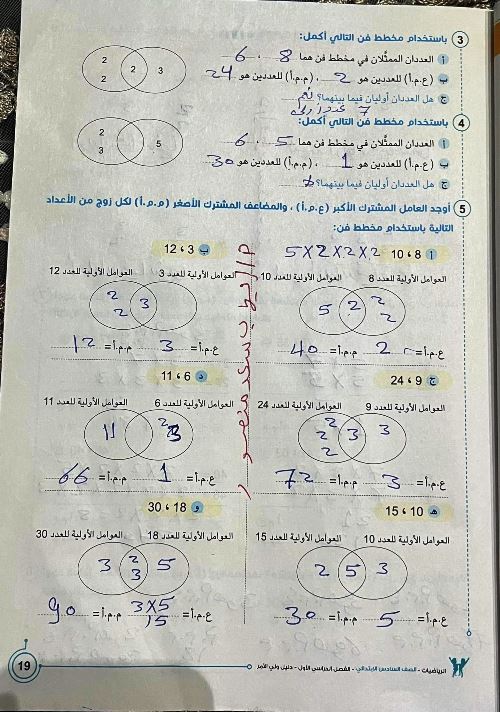 3 باستخدام مخطط فن التالي أكمل:
أ العددان الممثَّلان في مخطط فن هما 8 ، 6
ب (ع.م.أ) للعددين هو 2 ، (م.م.أ) للعددين هو 24
ج هل العددان أوليان فيما بينهما؟
2
2
2
3
4 باستخدام مخطط فن التالي أكمل:
أ العددان الممثَّلان في مخطط فن هما 5 ، 6
ب (ع.م.أ) للعددين هو 1 ، (م.م.أ) للعددين هو 30
ج هل العددان أوليان فيما بينهما؟
2
3
5
5 أوجد العامل المشترك الأكبر (ع.م.أ) ، والمضاعف المشترك الأصغر (م.م.أ) لكل زوج من الأعداد
التالية باستخدام مخطط فن:
أ 8 ، 10
5X2X2X2
العوامل الأولية للعدد 8 العوامل الأولية للعدد 10
5 2 2 2
ع.م.أ= 2 م.م.أ= 40
ب 3 ، 12
العوامل الأولية للعدد 3 العوامل الأولية للعدد 12
2 2 3
ع.م.أ= 3 م.م.أ= 12
ج 9 ، 24
العوامل الأولية للعدد 9 العوامل الأولية للعدد 24
2 2 2 3 3
ع.م.أ= 3 م.م.أ= 72
د 6 ، 11
العوامل الأولية للعدد 6 العوامل الأولية للعدد 11
11 2 3
ع.م.أ= 1 م.م.أ= 66
هـ 10 ، 15
العوامل الأولية للعدد 10 العوامل الأولية للعدد 15
2 5 3
ع.م.أ= 5 م.م.أ= 30
و 18 ، 30
العوامل الأولية للعدد 18 العوامل الأولية للعدد 30
3 2 3 5
ع.م.أ= 3X5 15 م.م.أ= 90
الرياضيات - الصف السادس الابتدائي - الفصل الدراسي الأول - دليل ولي الأمر
19